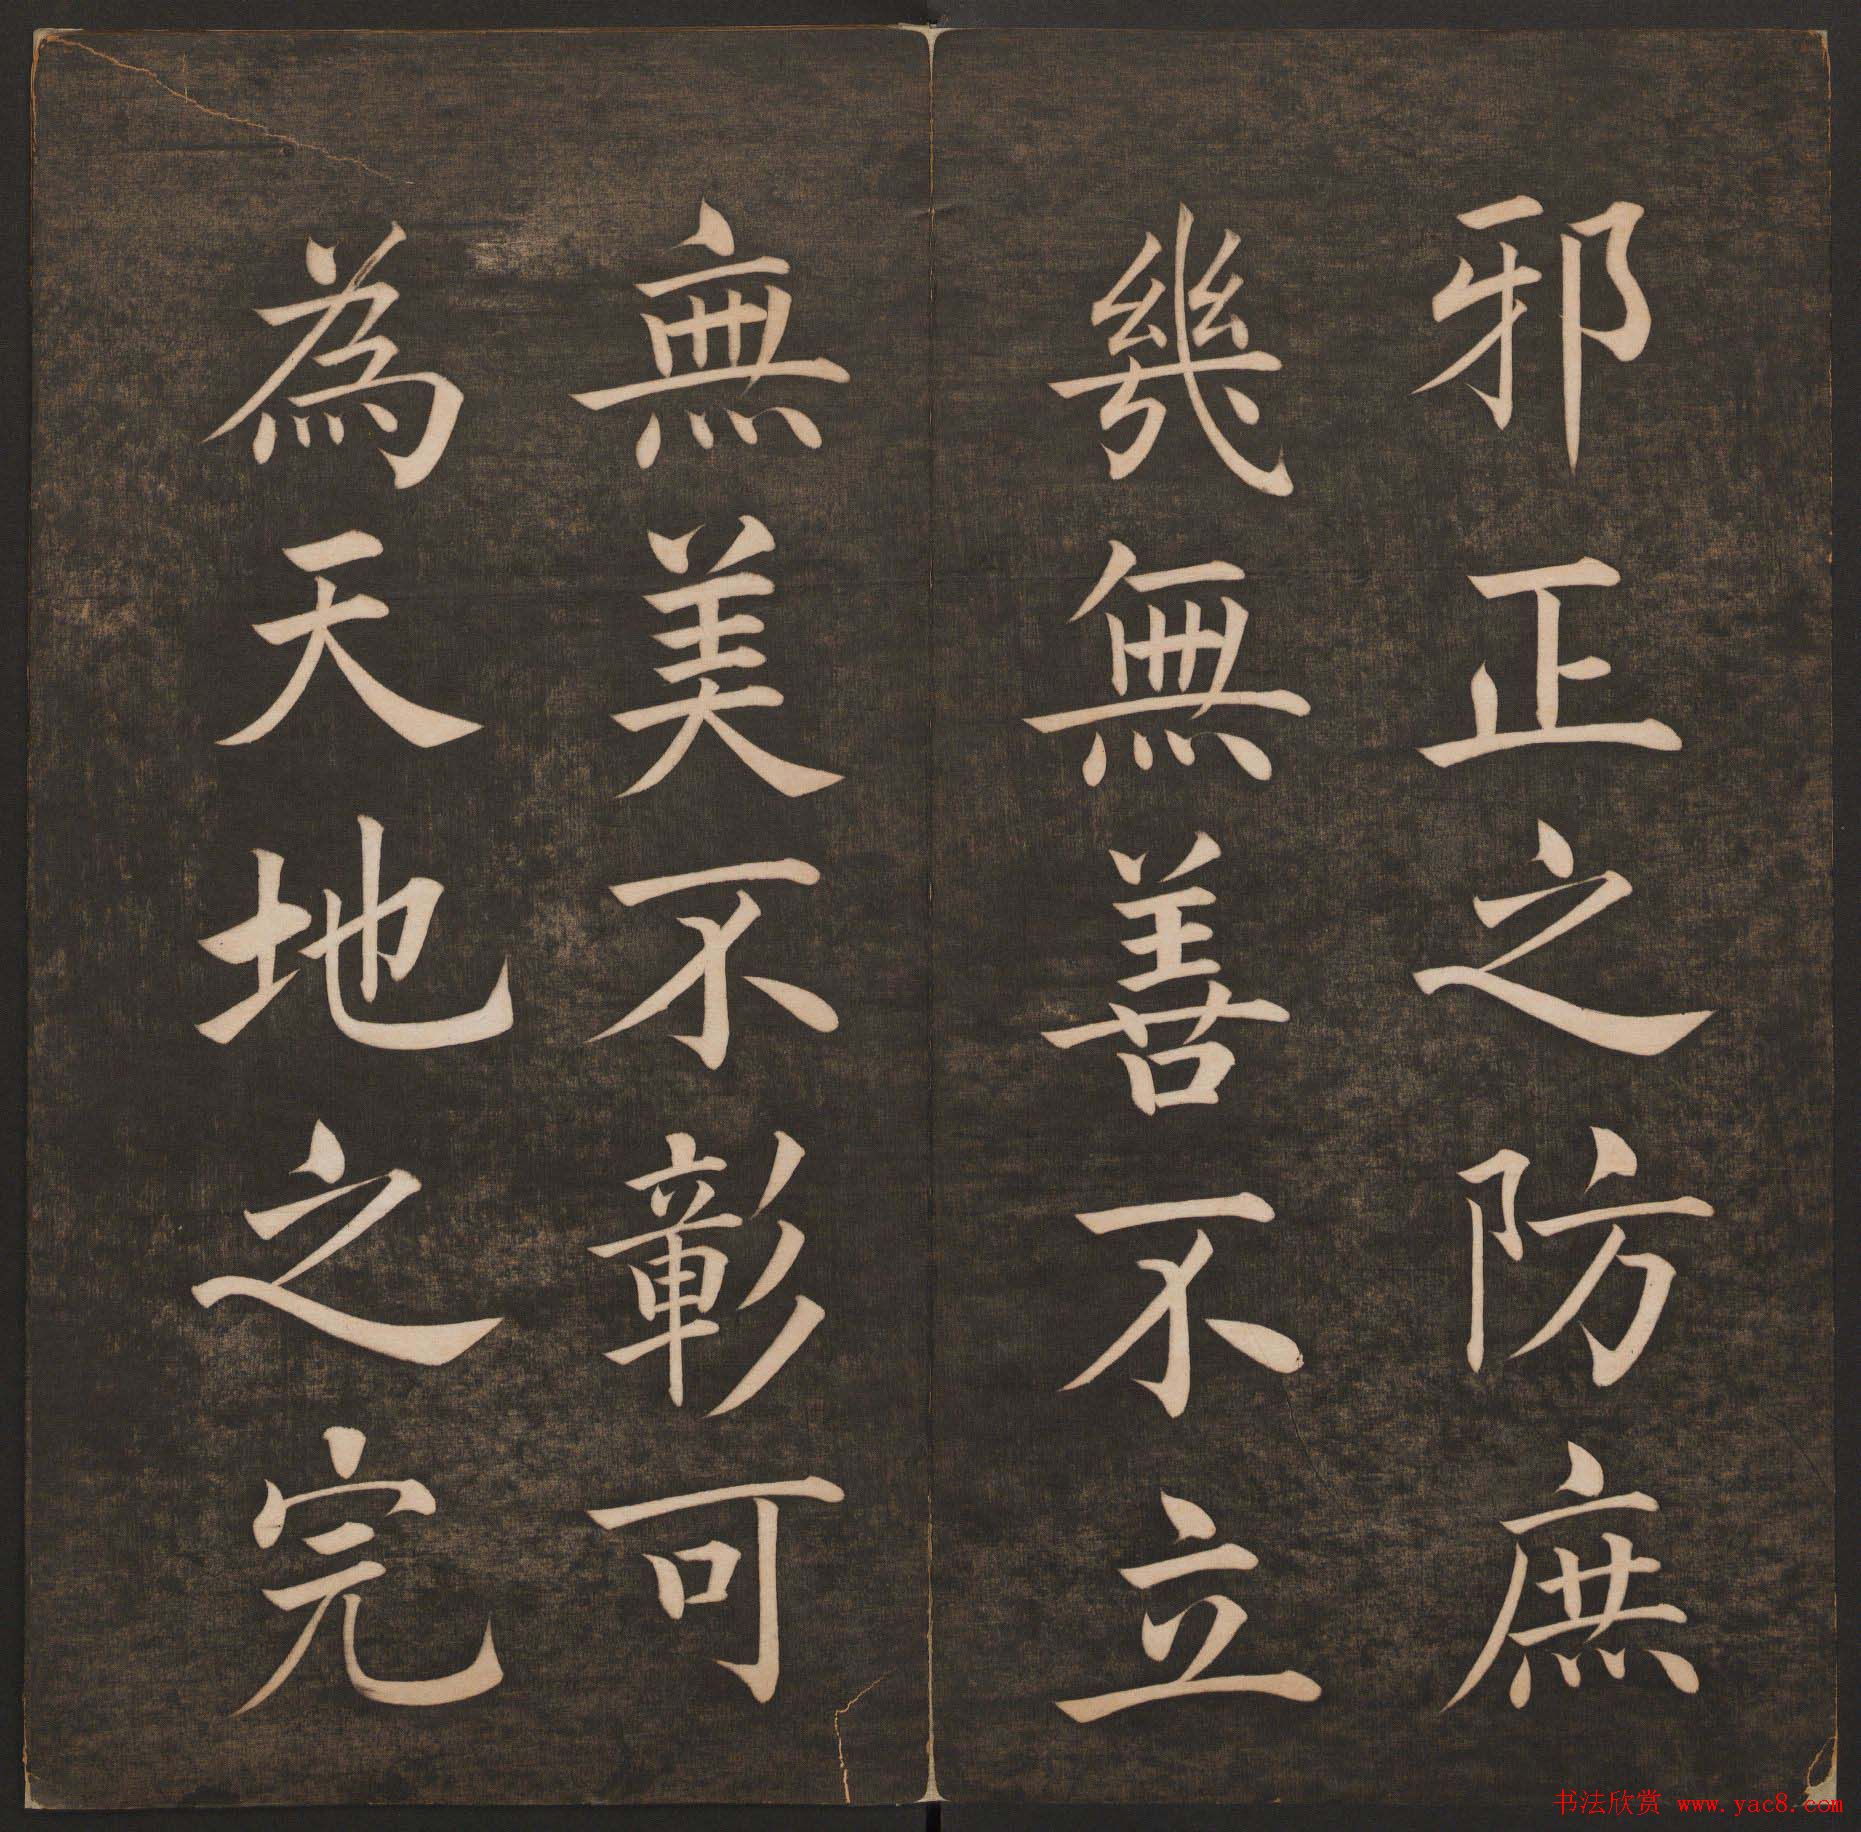 邪正之防庶
幾無善不立
無美不彰可
為天地之完
书法欣赏 www.yac8.com